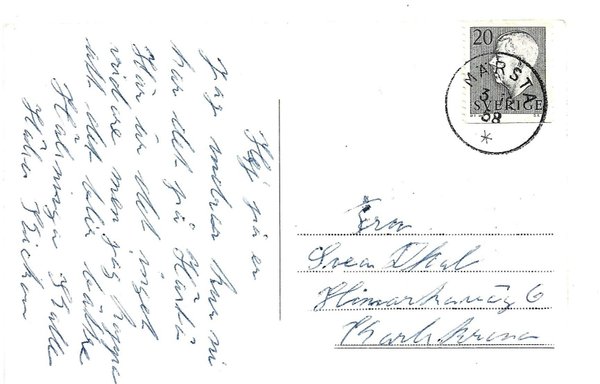 Hej på er
Jag undrar hur ni
har det på
Här är det inget
vidare men jag hoppas
att det blir bättre
Hälsninga

20
MÄRSTA
3
68
SVERIGE
Fru
Svea
6
Karlskrona